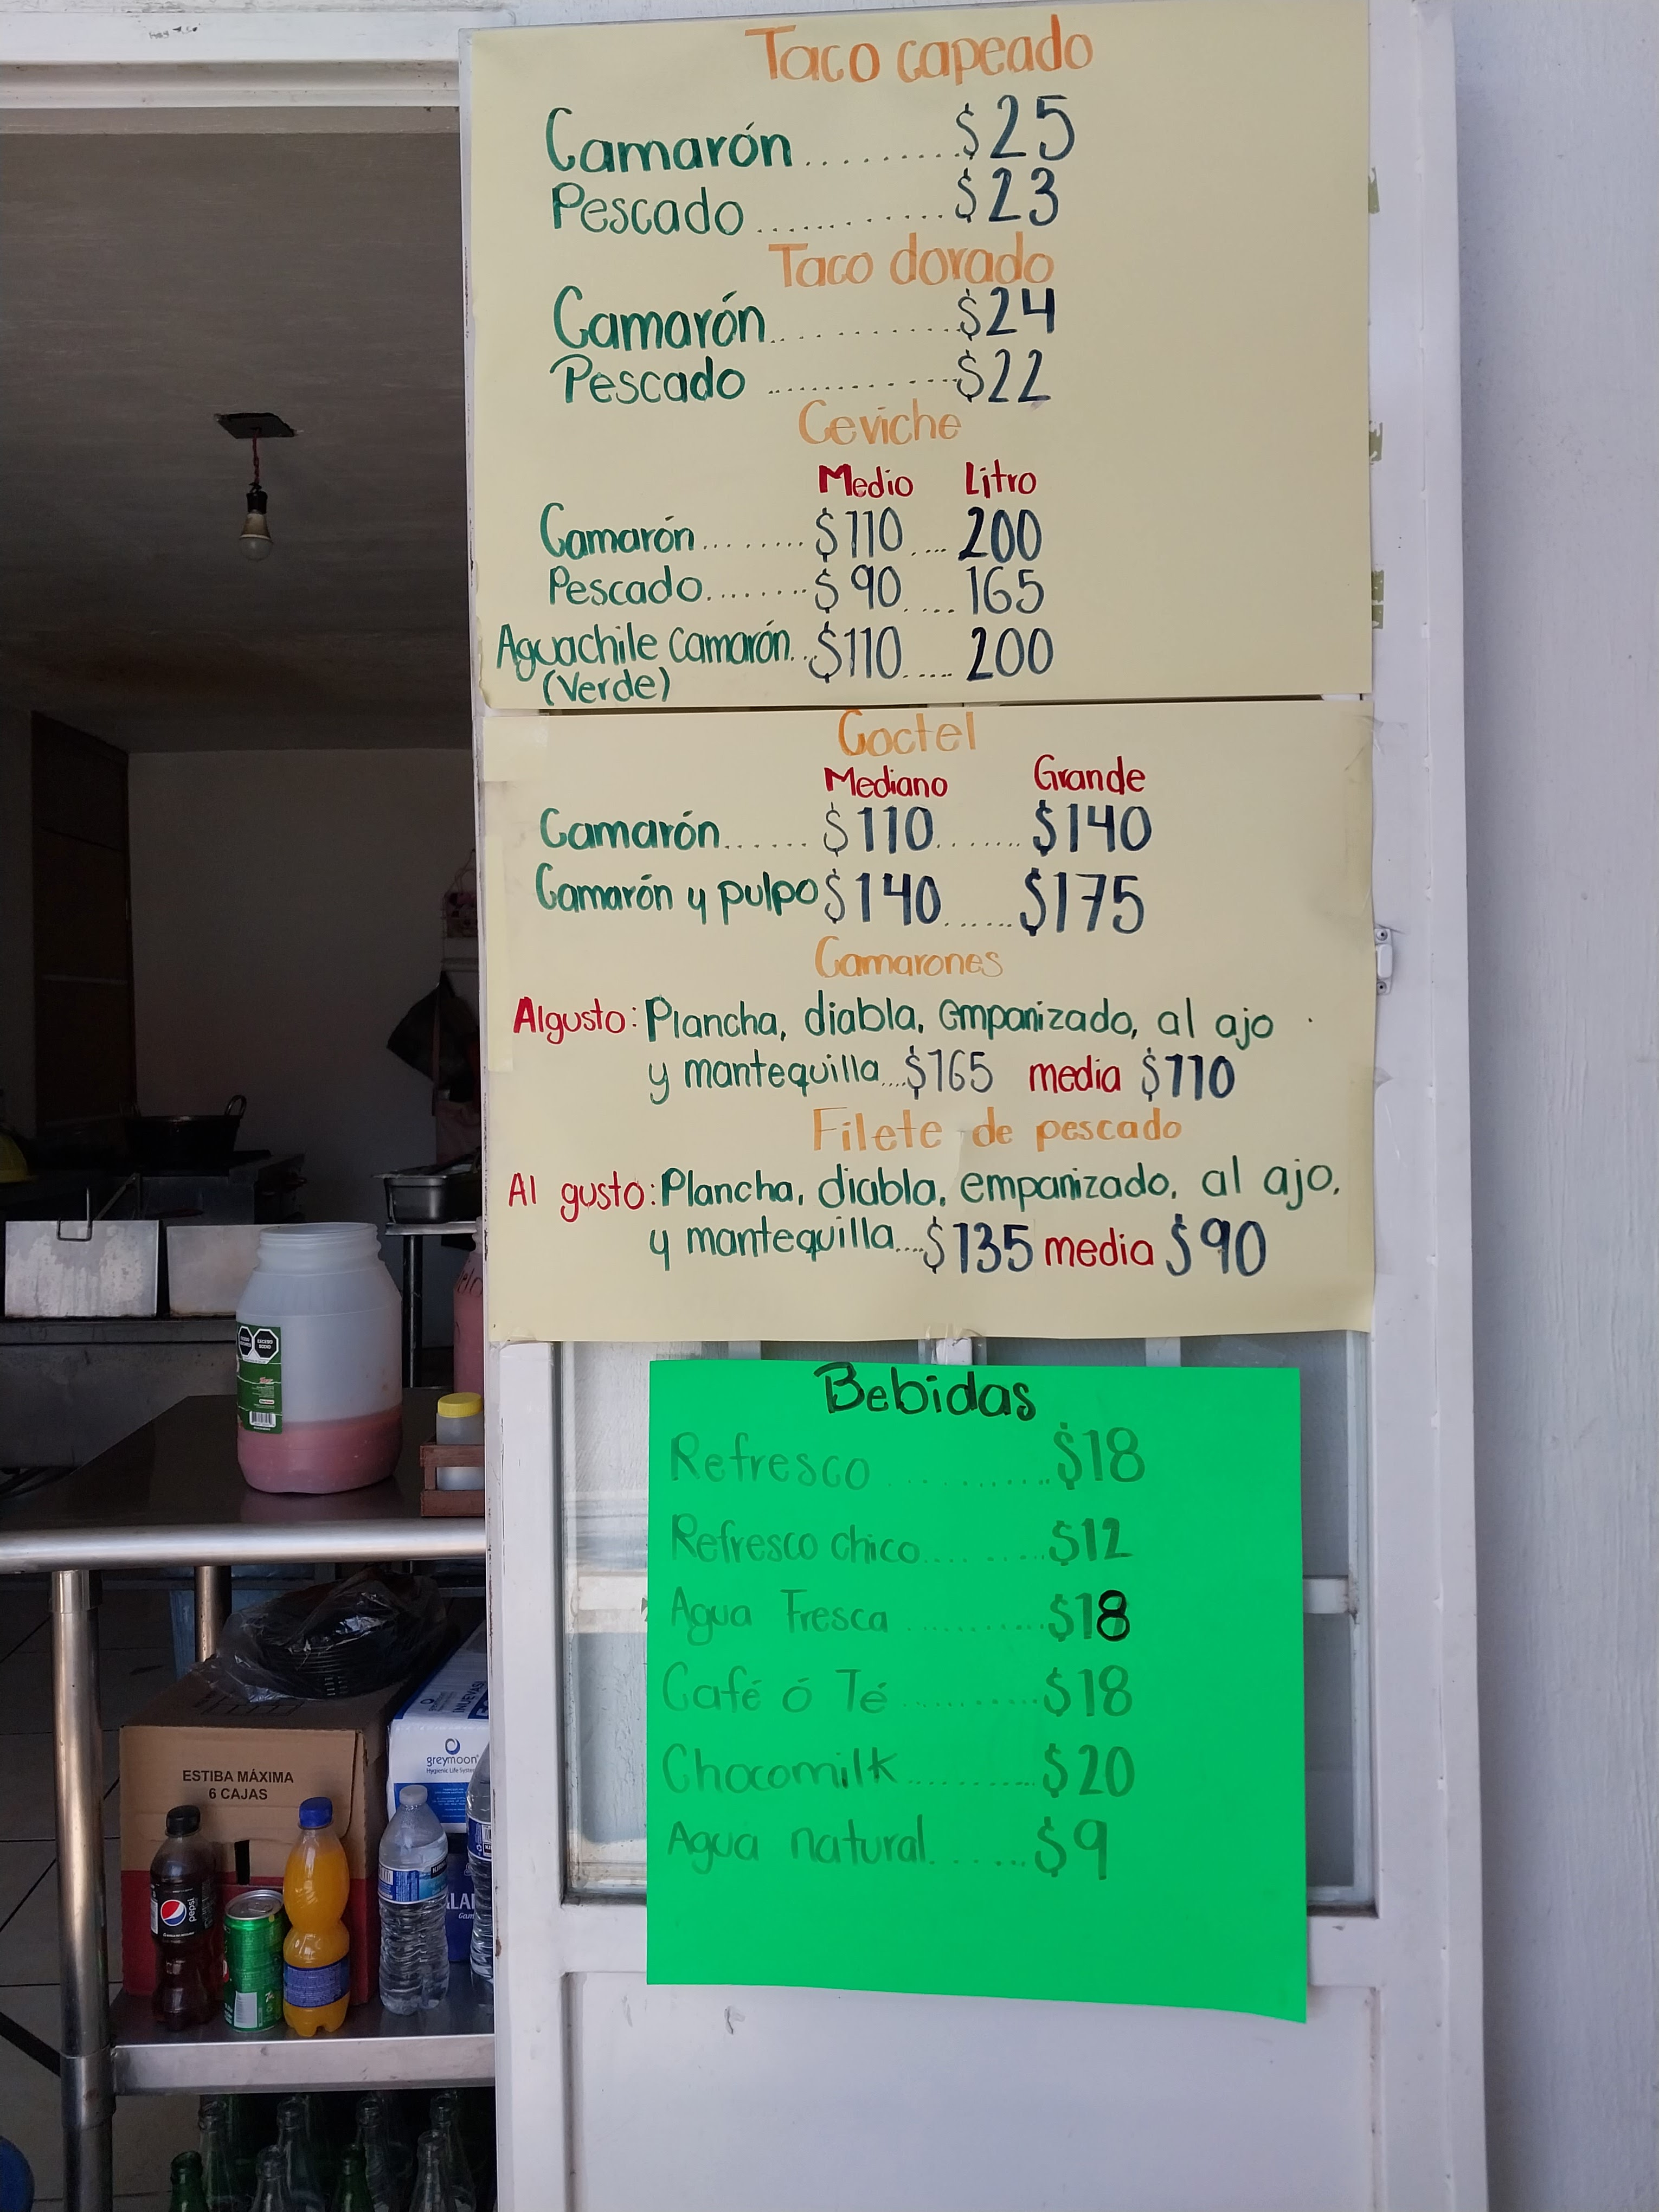 Taco capeado
Camarón.........$25
Pescado............$23
Taco dorado
Camarón...........$24
Pescado............$22
Ceviche
Medio Litro
Camarón........$110....200
Pescado.......$90....165
Aguachile camarón..$110.....200
(Verde)
Coctel
Mediano Grande
Camarón......$110.......$140
Camarón y pulpo $140......$175
Camarones
Algusto: Plancha, diabla, empanizado, al ajo
y mantequilla....$165 media $110
Filete de pescado
Al gusto: Plancha, diabla, empanizado, al ajo,
y mantequilla....$135 media $90
Bebidas
Refresco..........$18
Refresco chico.........$12
Agua Fresca..........$18
Café ó Té..........$18
Chocomilk..........$20
Agua natural......$9
greymoon
ESTIBA MÁXIMA
6 CAJAS
pepsi